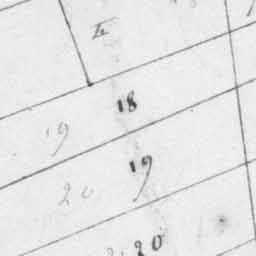 18
19
19
20
20